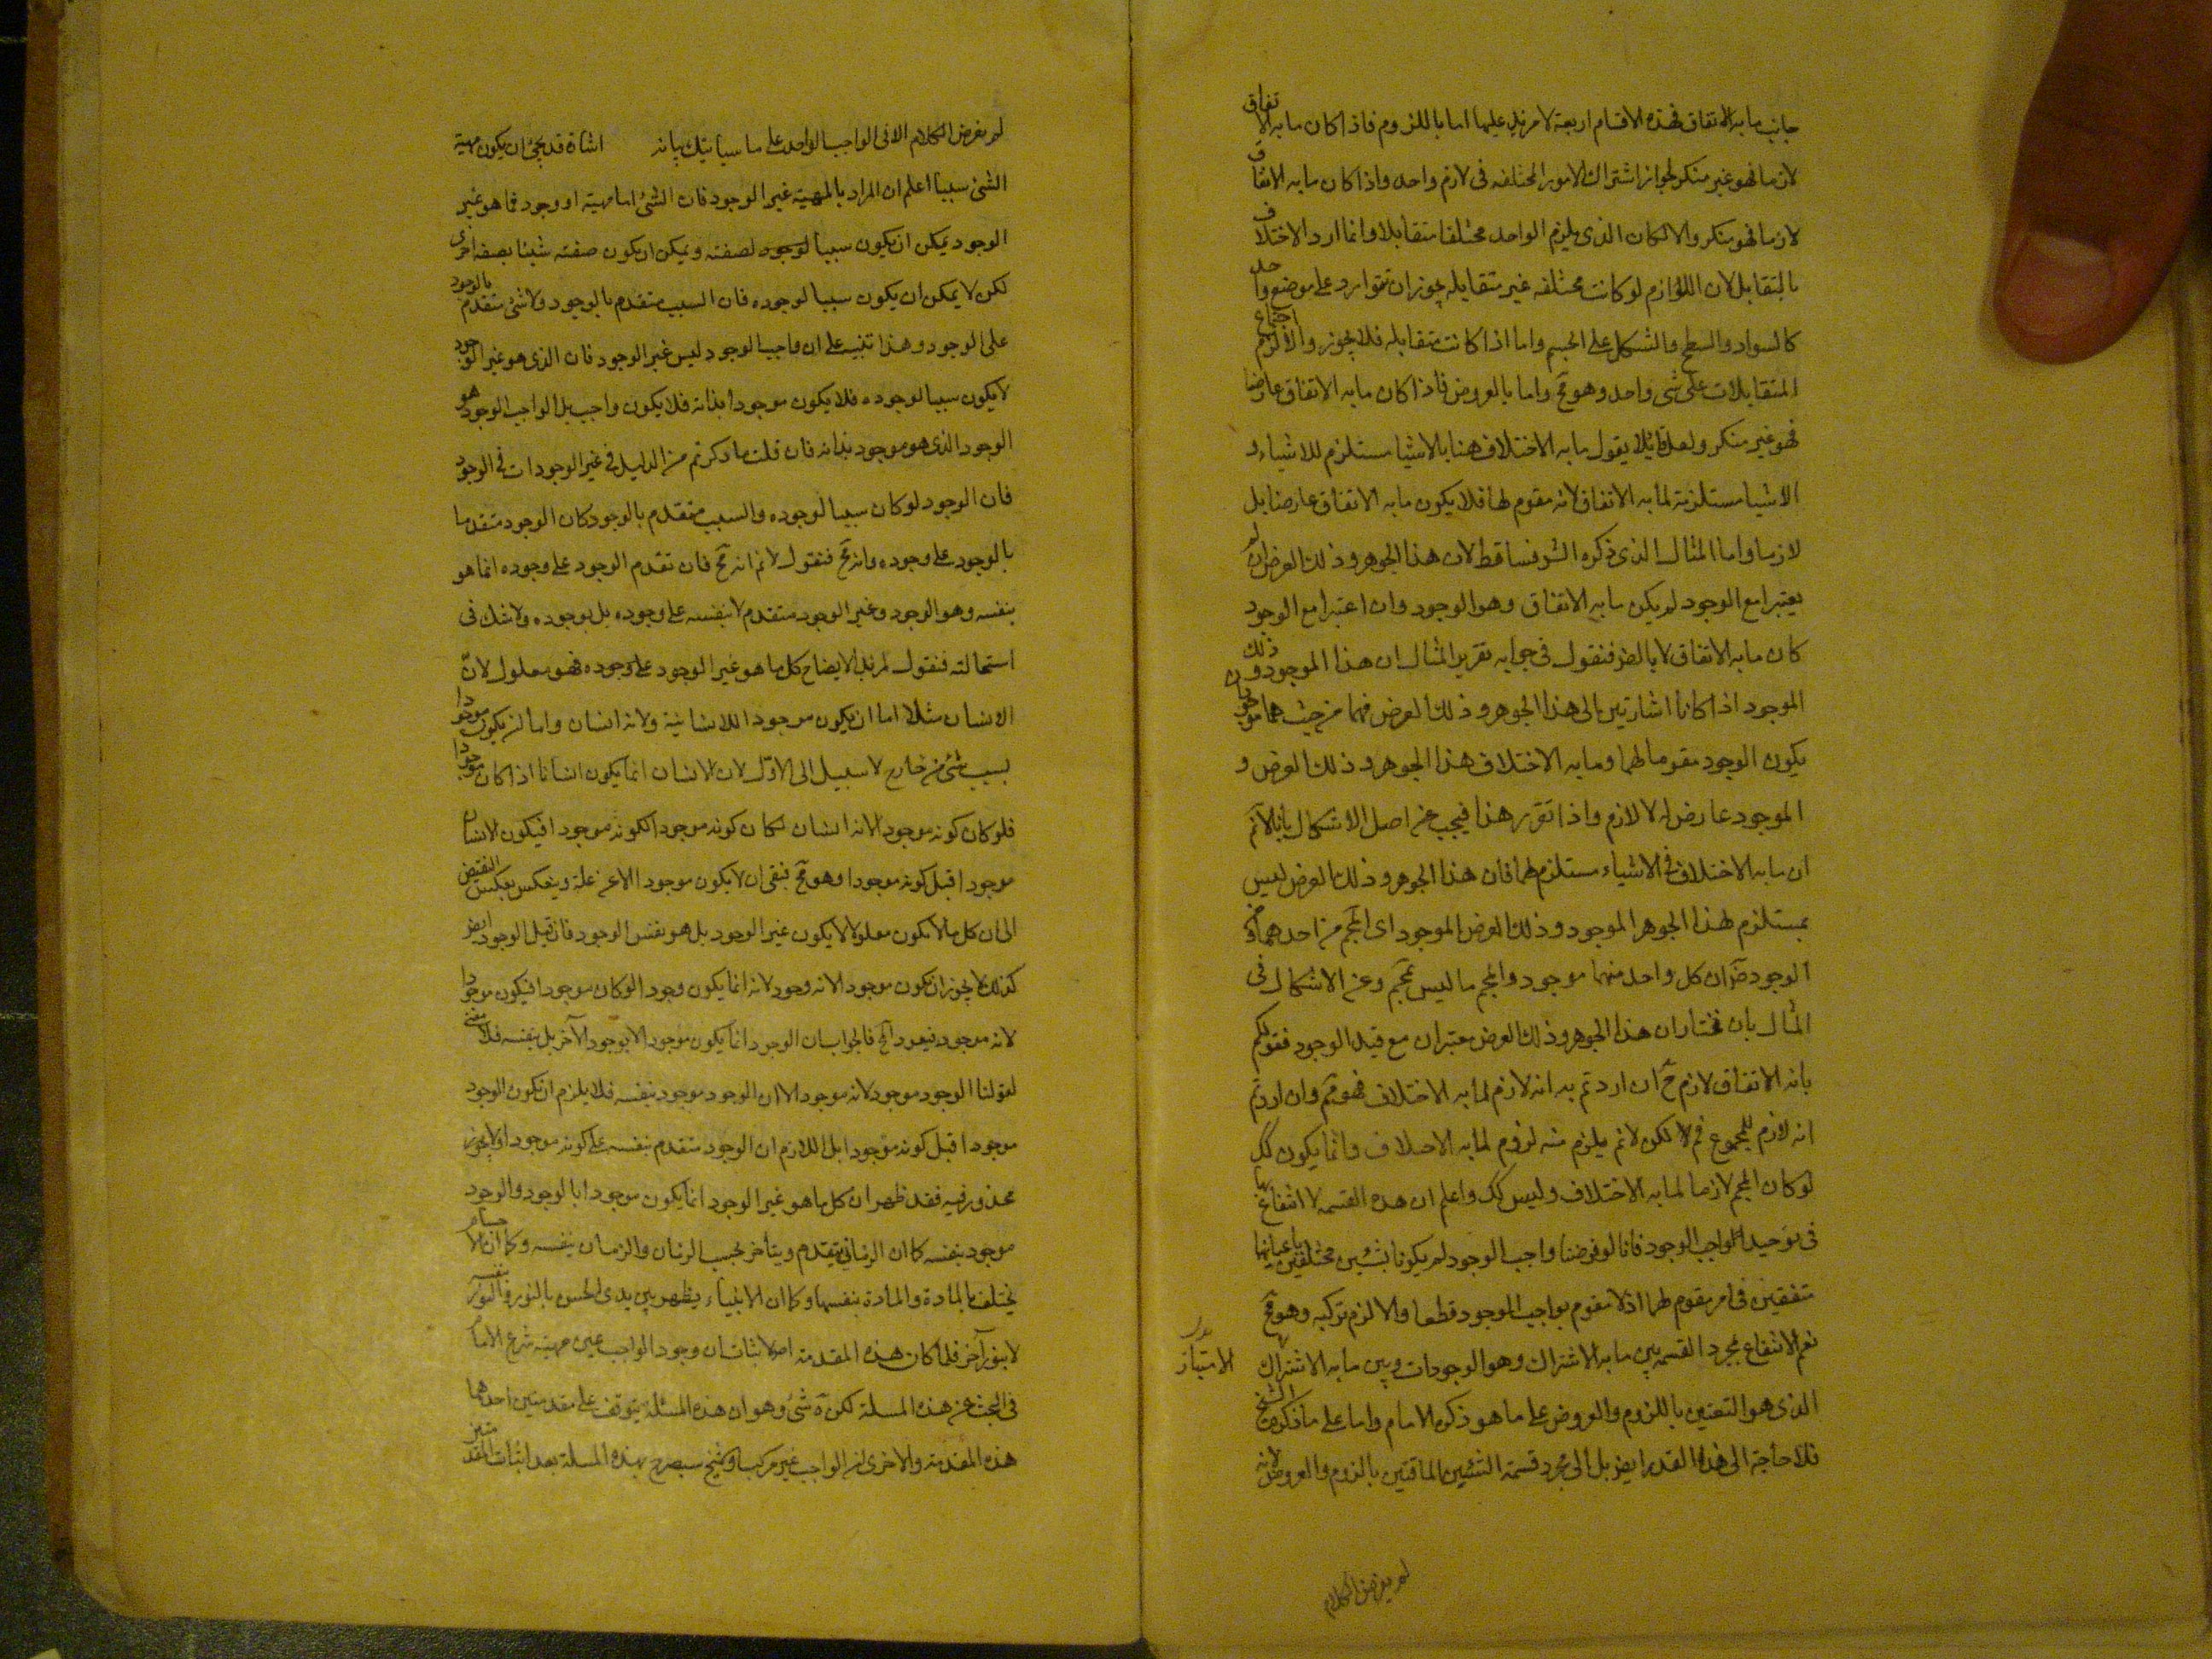 جانب ما به الاتفاق فهذه الاقسام اربعة لا مزيد عليها اما باللزوم فاذا كان ما به الاتفاق
لازما فهو غير منكر لجواز اشتراك الامور المختلفه فى لازم واحد واذا كان ما به الاتفاق
لازما فهو منكر والا لكان الذى يلزم الواحد مختلفا متقابلا وانما اراد الاختلاف
بالتقابل لان اللوازم لو كانت مختلفه غير متقابله يجوز ان تتوارد على موضع واحد
كالسواد والسطح والشكل على الجسم واما اذا كانت متقابله فلا يجوز والا لزم اجتماع
المتقابلات على شى واحد وهو مح واما بالعروض فاذا كان ما به الاتفاق عارضا
فهو غير منكر ولعل قايلا يقول ما به الاختلاف هنا بالاشيا مستلزم للاشياء و
الاشيا مستلزمة لما به الاتفاق لانه مقوم لها فلا يكون ما به الاتفاق عارضا بل
لازما واما المثال الذى ذكره الشيخ فساقط لان هذا الجوهر وذلك العرض ان لم
يعتبرا مع الوجود لم يكن ما به الاتفاق وهو الوجود وان اعتبرا مع الوجود
كان ما به الاتفاق لا بالعرض فنقول فى جوابه تقرير المثال ان هذا الموجود وذلك
الموجود اذا كانا اشارتين الى هذا الجوهر وذلك العرض فهما من حيث هما موجودان
يكون الوجود مقوما لهما وما به الاختلاف هذا الجوهر وذلك العرض و
الموجود عارض له لا لازم واذا تقرر هذا فيجب عن اصل الاشكال بانا لا نم
ان ما به الاختلاف فى الاشياء مستلزم لها فان هذا الجوهر وذلك العرض ليس
بمستلزم لهذا الجوهر الموجود وذلك العرض الموجود اى المجموع من احدهما و
الوجود ضرورة ان كل واحد منهما موجود والمجموع ما ليس بمجموع وعن الاشكال فى
المثال بان نختار ان هذا الجوهر وذلك العرض معتبران مع قيد الوجود فقولكم
بانه الاتفاق لازم ح ان اردتم به انه لازم لما به الاختلاف فهو مم وان اردتم
انه لازم للمجموع فم لكن لا نم يلزم منه لزوم لما به الاختلاف وانما يكون كك
لو كان المجموع لازما لما به الاختلاف وليس كك واعلم ان هذه القسمه لا انتفاع بها
فى توحيد الواجب الوجود فانا لو فرضنا واجب الوجود لم يكونا بشيئين مختلفين باعيانهما
متفقين فى امر مقوم لهما اذ لا مقوم بواجب الوجود قطعا والا لزم تركبه وهو مح
نعم الانتفاع بمجرد القسمه بين ما به الاشتراك وهو الوجودات وبين ما به الاشتراك
الامتياز
الذى هو التعين باللزوم والعروض على ما هو ذكره الامام واما على ما ذكره الشيخ
فلا حاجة الى هذا القدر ايضا بل الى مجرد قسمة الشيئين الماقتين بالزوم والعروض لانه
لم يفرض الكلام
لم يفرض الكلام الا فى الواجب الواحد على ما سيأتيك بيانه اشارة قد يجوز ان يكون مهية
الشئ سببا اعلم ان المراد بالمهية غير الوجود فان الشئ اما مهية او وجود فما هو غير
الوجود يمكن ان يكون سببا لوجود لصفته ويمكن ان يكون صفته شيئا بصفه اخرى
لكن لا يمكن ان يكون سببا لوجوده فان السبب متقدم بالوجود ولا شئ متقدم بالوجود
على الوجود وهذا تنبيه على ان واجب الوجود ليس غير الوجود فان الذى هو غير الوجود
لا يكون سببا لوجوده فلا يكون موجودا بذاته فلا يكون واجب بل الواجب الوجود هو
الوجود الذى هو موجود بذاته فان قلت ما ذكرتم من الدليل فى غير الوجود ات فى الوجود
فان الوجود لو كان سببا لوجوده والسبب متقدم بالوجود كان الوجود متقدما
بالوجود على وجوده وانه مح فنقول لا نم انه مح فان تقدم الوجود على وجوده انما هو
بنفسه وهو الوجود وغير الوجود متقدم لا بنفسه على وجوده بل بوجوده ولا شك فى
استحالته فنقول لمزيد الايضاح كل ما هو غير الوجود على وجوده فهو معلول لان
الانسان مثلا اما ان يكون موجودا للانسانية ولانه انسان واما ان يكون موجودا
بسبب شئ من خارج لا سبيل الى الاول لان الانسان انما يكون انسانا اذا كان موجودا
فلو كان كونه موجودا لانه انسان لكان كونه موجودا لكونه موجودا فيكون الانسان
موجودا قبل كونه موجودا وهو مح فبقى ان لا يكون موجودا الا عن علة وينعكس بعكس النقيض
الى ان كل ما لا يكون معلولا لا يكون غير الوجود بل هو نفس الوجود فان قيل الوجود ايضا
كذلك لا يجوز ان يكون موجودا لانه وجود لانه انما يكون وجودا لو كان موجودا فيكون موجودا
لانه موجود فيعود المح فالجواب ان الوجود انما يكون موجودا لا بوجود آخر بل بنفسه فلا معنى
لقولنا الوجود موجود لانه موجود الا ان الوجود موجود بنفسه فلا يلزم ان يكون الوجود
موجودا قبل كونه موجودا بل اللازم ان الوجود متقدم بنفسه على كونه موجودا ولا
محذور فيه فقد ظهر ان كل ما هو غير الوجود انما يكون موجودا بالوجود والوجود
موجود بنفسه كما ان الزمانى يتقدم ويتأخر بحسب الزمان والزمان بنفسه وكما ان الاجسام
يختلف بالمادة والمادة بنفسها وكما ان الاشياء يظهر بين يدى الحس بالنور والنور بنفسه
لا بنور آخر فلما كان هذه المقدمة اصلا لاثبات ان وجود الواجب عين مهيته شرع الامام
فى البحث عن هذه المسئلة لكن شئ وهو ان هذه المسئلة يتوقف على مقدمتين احدهما
هذه المقدمة والاخرى ان الواجب غير مركب والشيخ سيصرح بهذه المسئلة بعد اثبات المقدمتين